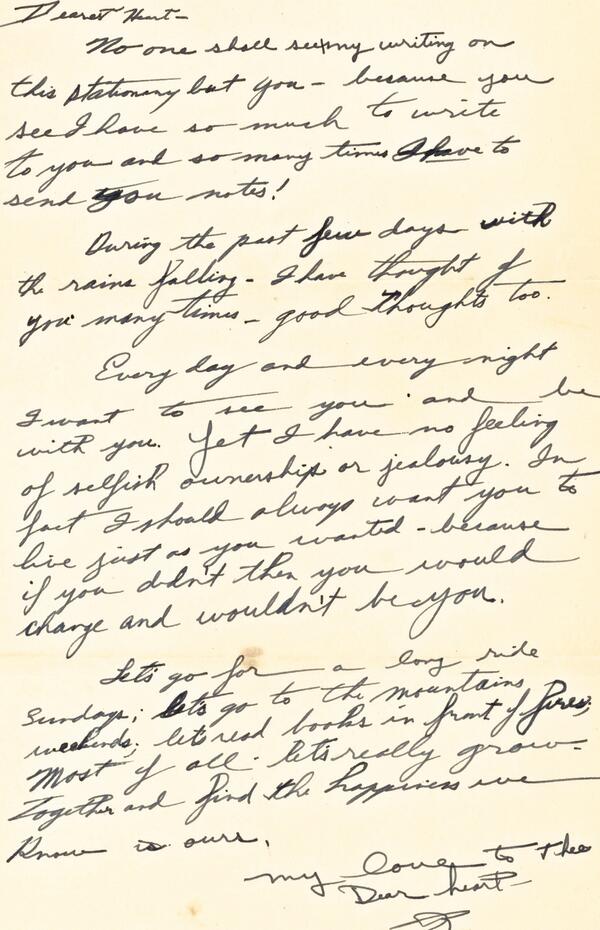 Dearest Heart-
No one shall see my writing on
this stationary but you - because you
see I have so much to write
to you and so many times I have to
send you notes!
During the past few days with
the rains falling - I have thought of
you many times - good thoughts too.
Every day and every night
I want to see you and be
with you. Yet I have no feeling
of selfish ownership or jealousy. In
fact I should always want you to
live just as you wanted - because
if you didn't then you would
change and wouldn't be you.
Let's go for a long ride
Sundays; let's go to the mountains
weekends; let's read books in front of fires;
Most of all - let's really grow
together and find the happiness we
know is ours.
My love to Thee
Dear heart-